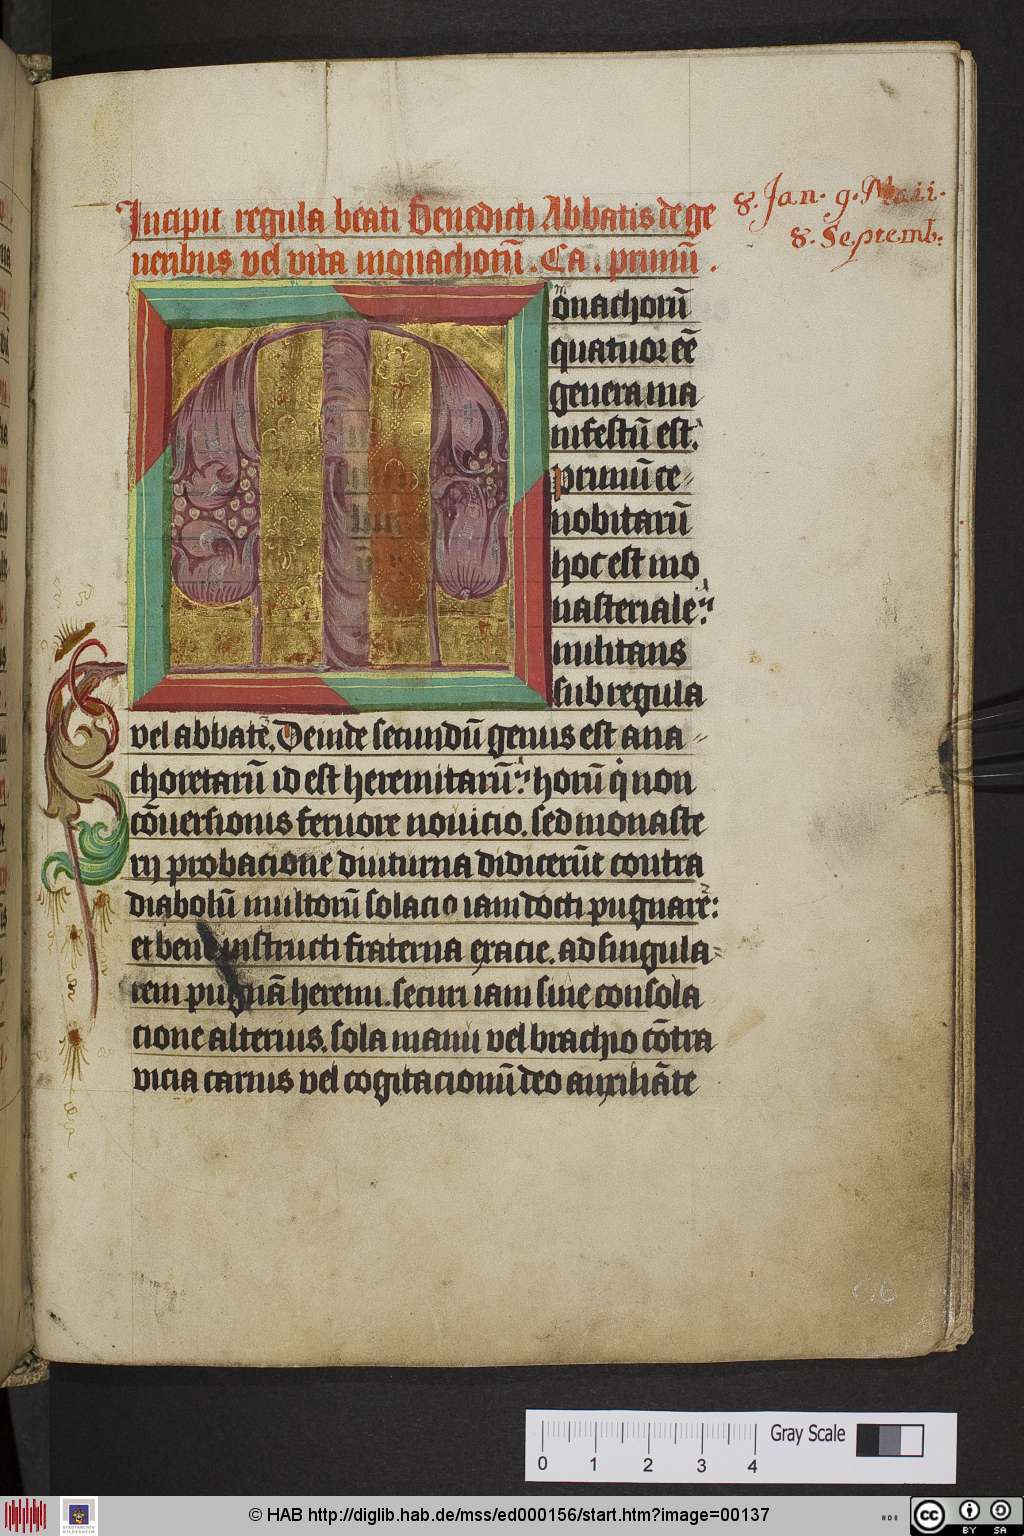 Incipit regula beati Benedicti Abbatis de ge
neribus vel vita monachorū. Ca. primū.
8. Jan. 9. Maii.
8. Septemb.
Monachorū
quatuor eē
genera ma
nifestū est.
primū ce
nobitarū
hoc est mo
nasteriale:
militans
sub regula
vel abbate. Deinde secundū genus est ana
choretarū id est heremitarū: horū q̇ non
cōversionis fervore novicio. sed monaste
rij probacione diuturna didicerūt contra
diabolū multorū solacio iam docti pugnare:
et bene instructi fraterna exacie. ad singula
rem pugnā heremi. securi iam sine consola
cione alterius. sola manu vel brachio cōtra
vicia carnis vel cogitacionū deo auxiliāte
66
0 1 2 3 4
Gray Scale
© HAB http://diglib.hab.de/mss/ed000156/start.htm?image=00137
cc BY SA